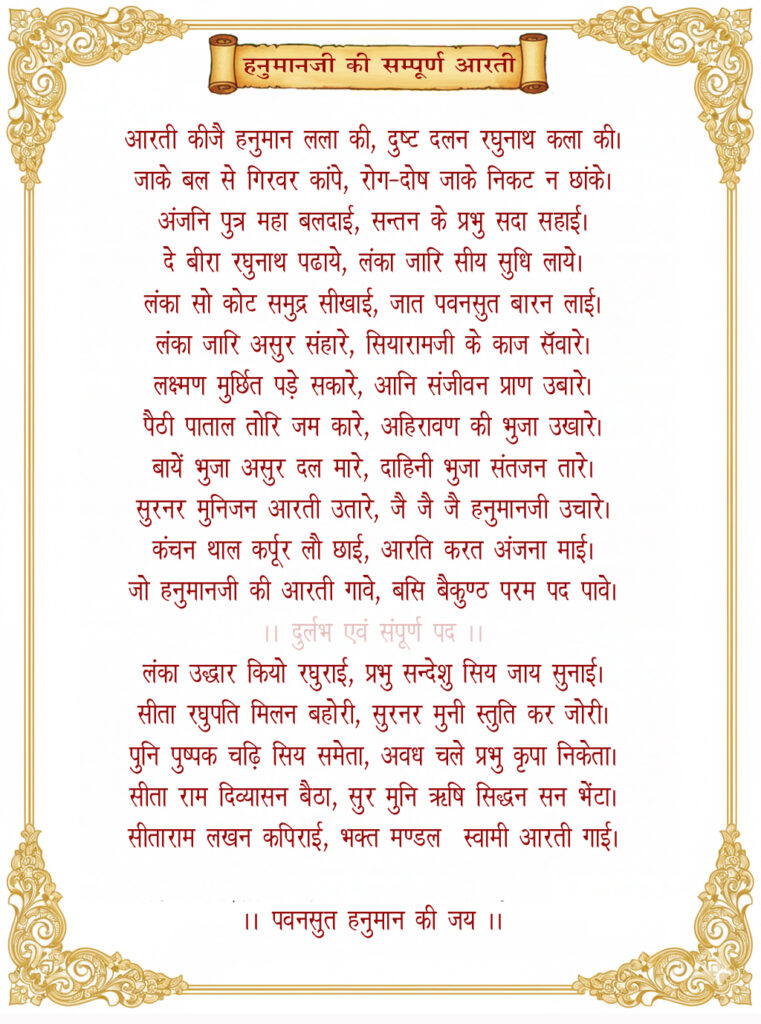 हनुमानजी की सम्पूर्ण आरती
आरती कीजै हनुमान लला की, दुष्ट दलन रघुनाथ कला की।
जाके बल से गिरवर कांपे, रोग-दोष जाके निकट न छांके।
अंजनि पुत्र महा बलदाई, सन्तन के प्रभु सदा सहाई।
दे बीरा रघुनाथ पढाये, लंका जारि सीय सुधि लाये।
लंका सो कोट समुद्र सीखाई, जात पवनसुत बारन लाई।
लंका जारि असुर संहारे, सियारामजी के काज सॅवारे।
लक्ष्मण मुर्छित पड़े सकारे, आनि संजीवन प्राण उबारे।
पैठी पाताल तोरि जम कारे, अहिरावण की भुजा उखारे।
बायें भुजा असुर दल मारे, दाहिनी भुजा संतजन तारे।
सुरनर मुनिजन आरती उतारे, जै जै जै हनुमानजी उचारे।
कंचन थाल कर्पूर लौ छाई, आरति करत अंजना माई।
जो हनुमानजी की आरती गावे, बसि बैकुण्ठ परम पद पावे।
।। दुर्लभ एवं संपूर्ण पद ।।
लंका उद्धार कियो रघुराई, प्रभु सन्देशु सिय जाय सुनाई।
सीता रघुपति मिलन बहोरी, सुरनर मुनी स्तुति कर जोरी।
पुनि पुष्पक चढ़ि सिय समेता, अवध चले प्रभु कृपा निकेता।
सीता राम दिव्यासन बैठा, सुर मुनि ऋषि सिद्धन सन भेंटा।
सीताराम लखन कपिराई, भक्त मण्डल स्वामी आरती गाई।
।। पवनसुत हनुमान की जय ।।